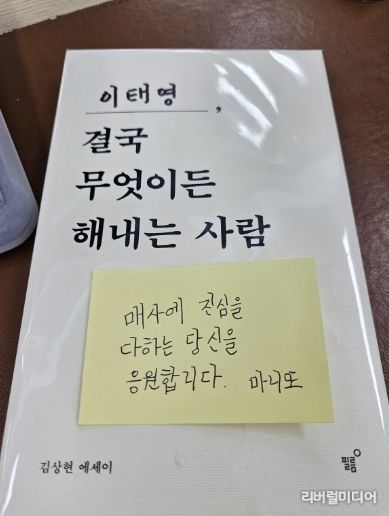 이태영,
결국
무엇이든
해내는 사람
매사에 진심을
다하는 당신을
응원합니다. 마니또
김상현 에세이
필름
리버럴미디어